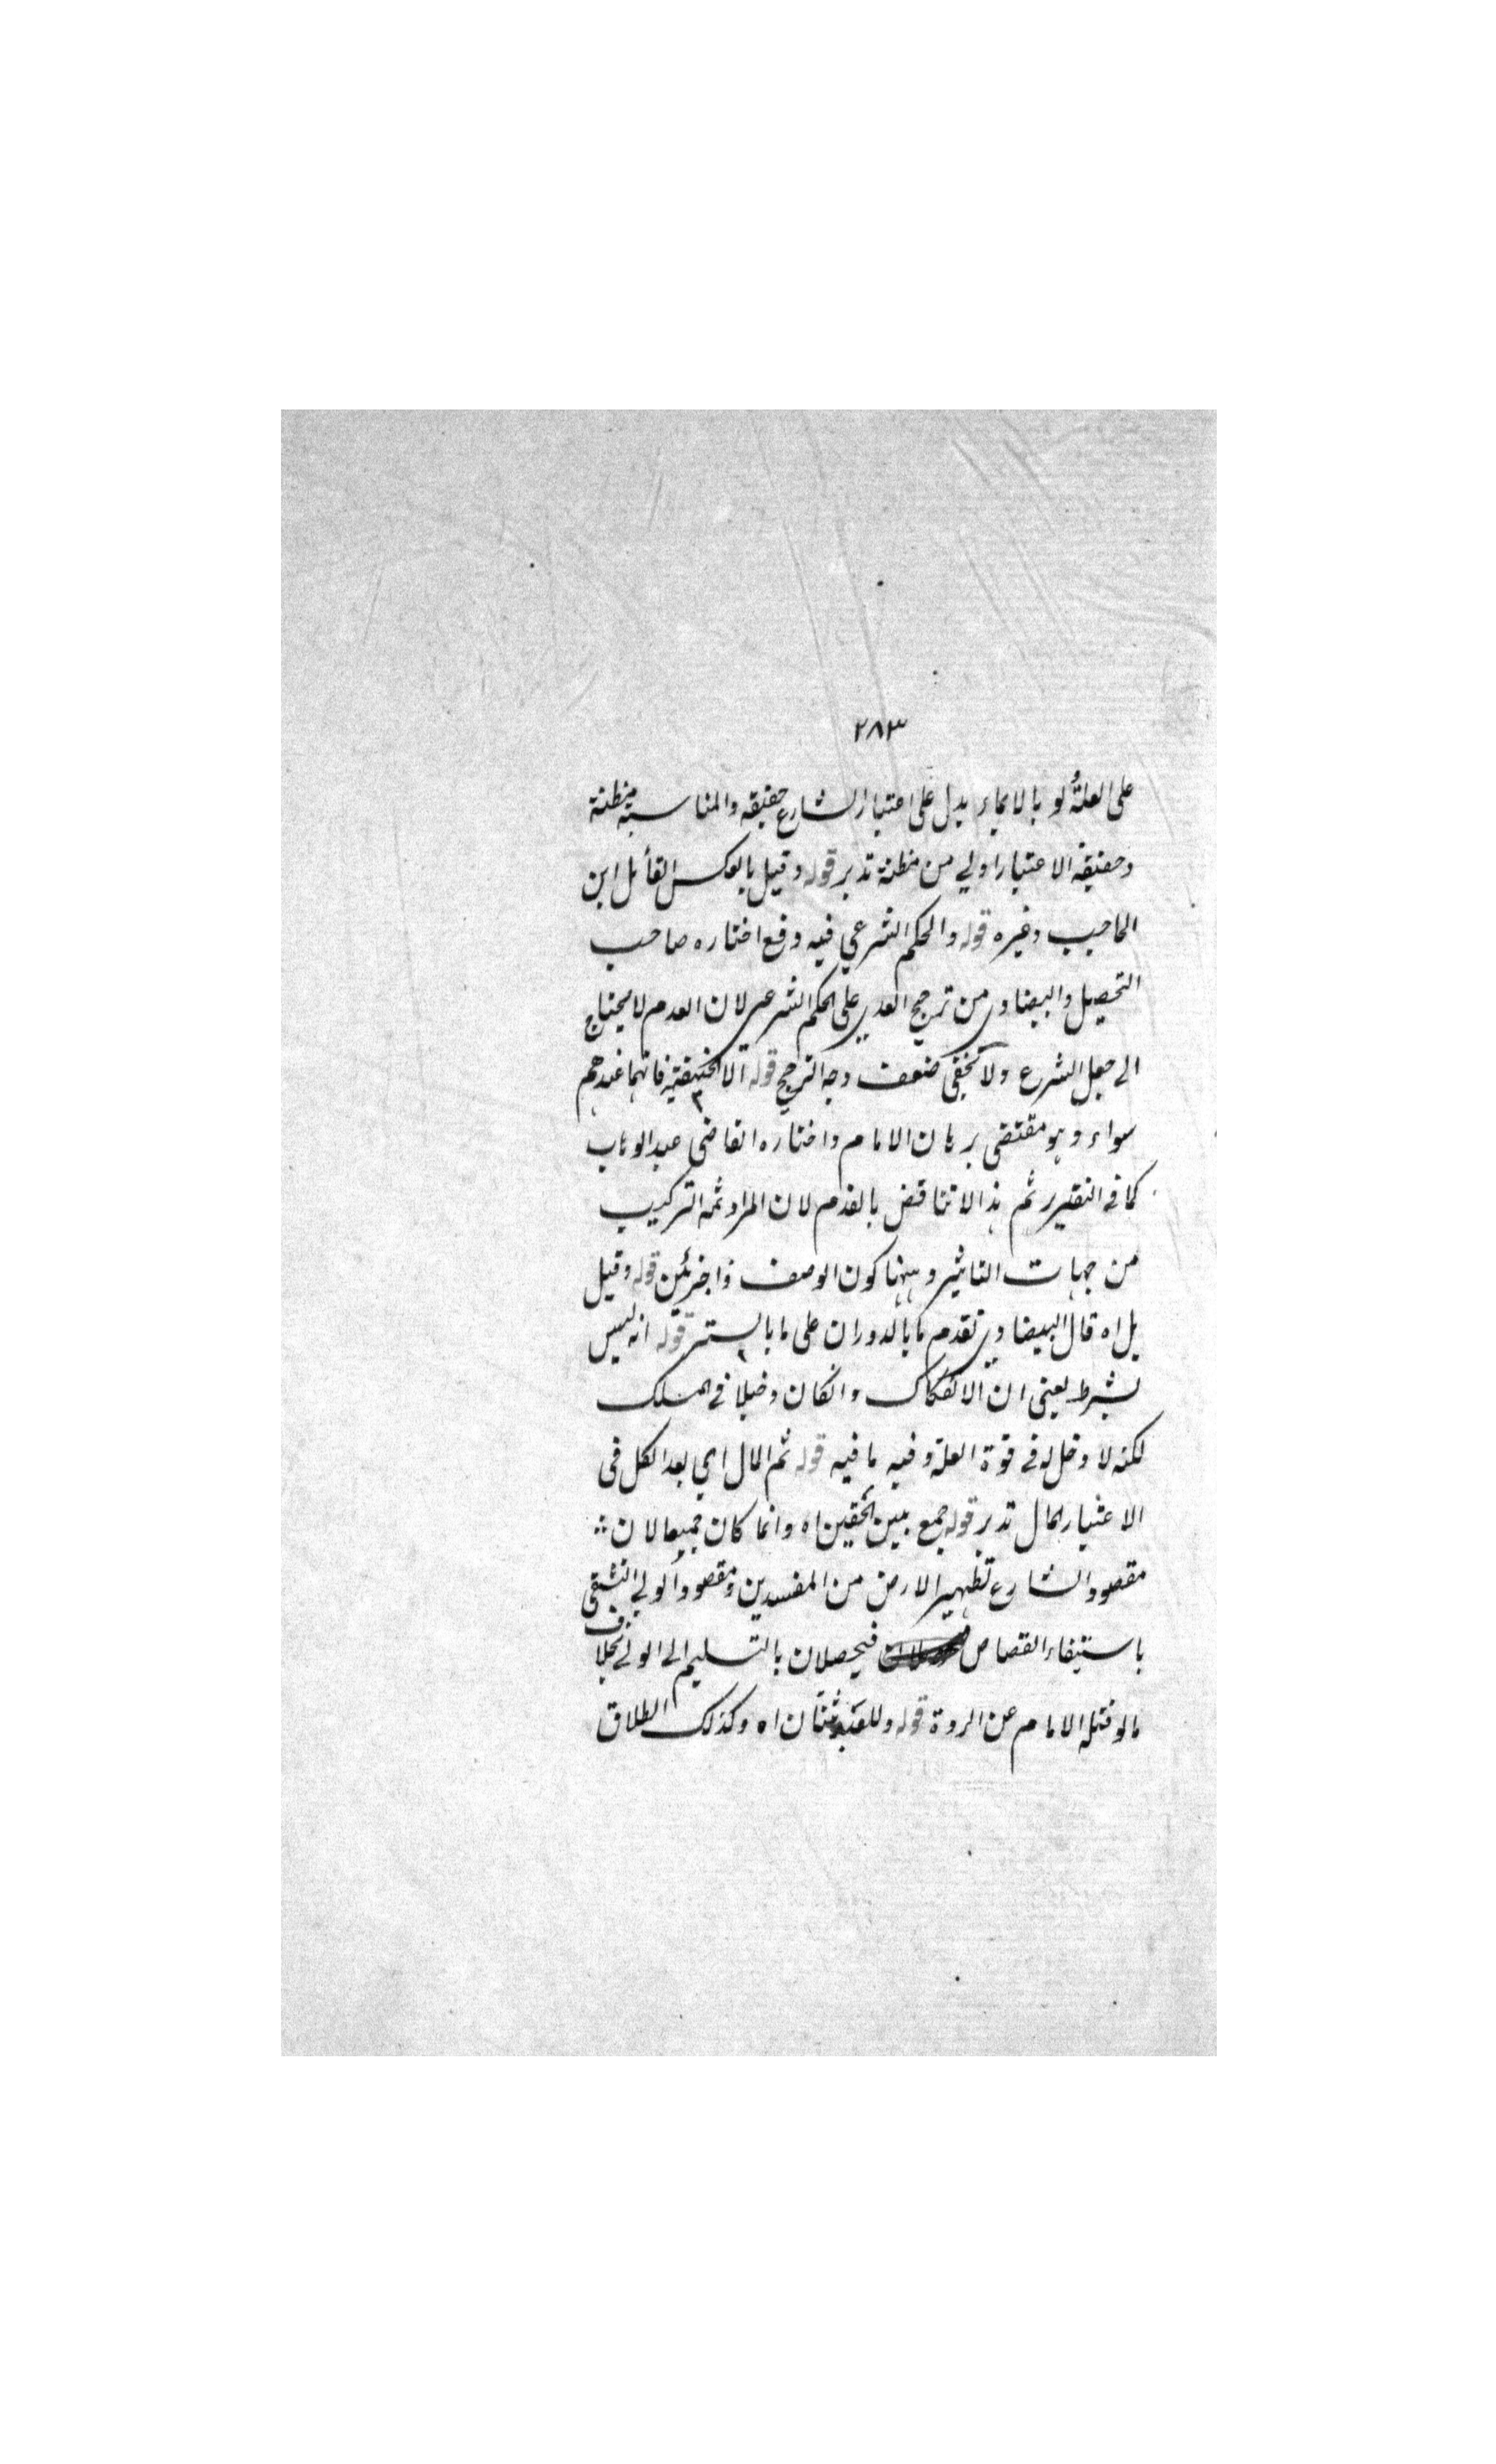 ٢٨٣
على العلة ولو بالايماء يدل على اعتبار الشارع حقيقة والمناسبة مظنة
وحقيقة الاعتبار اولي من مظنة تدبر قوله وقيل بالعكس القائل ابن
الحاجب وغيره قوله والحكم الشرعي فيه دفع اختاره صاحب
التحصيل والبيضاوي من ترجيح العدمي على الحكم الشرعي لان العدم لا يحتاج
الى جعل الشرع ولا يخفى ضعف وجه الترجيح قوله الا الحنيفية فانهما عندهم
سواء وهو مقتضى برهان الامام واختاره القاضي عبد الوهاب
كما في التقرير ثم هذا لا تناقض بالقدم لان المراد ثمه التركيب
من جهات التاثير وههنا كون الوصف ذا جزئين قوله وقيل
بل اه قال البيضاوي تقدم ما بالدوران على ما بالستر قوله انه ليس
بشرط يعنى ان الانفكاك وانكان دخيلا في المسلك
لكنه لا دخل له في قوة العلة وفيه ما فيه قوله ثم المال اي بعد الكل في
الاعتبار المال تدبر قوله جمع بين الحقين اه وانما كان جميعا لان
مقصود الشارع تطهير الارض من المفسدين ومقصود الولي التشفي
باستيفاء القصاص فيحصلان بالتسليم الى الولي بخلاف
ما لو قتله الامام عن الردة قوله وللعبد ثنتان اه وكذلك الطلاق